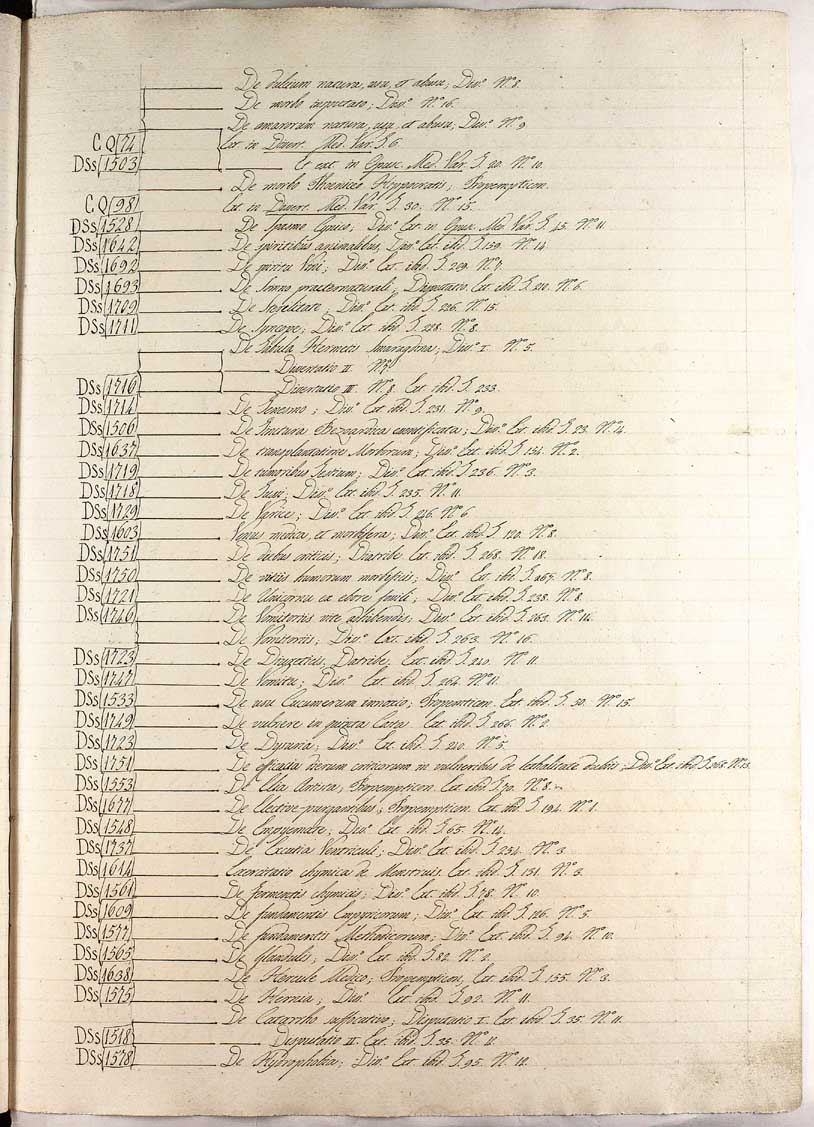 De dulcium natura, usu, et abusu; Diss.º N.º 8.
De morbo imputato; Diss.º N.º 16.
De amarorum natura, usu, et abusu; Diss.º N.º 9
C Q 74 Ext. in Dissert. Med. Var. T. 6.
DSs 1503 Et ext. in Opusc. Med. Var. T. 20. N.º 10.
De morbo Phoeniceo Hyppocratis; Propempticon.
C Q 98 Ext. in Dissert. Med. Var. T. 30. N.º 15.
DSs 1528 De Spasmo Cynico; Diss.º Ext. in Opusc. Med. Var. T. 45. N.º 11
DSs 1642 De spiritibus animalibus, Diss.º Ext. ibid. T. 159. N.º 14
DSs 1692 De spiritu Vini; Diss.º Ext. ibid. T. 209. N.º
DSs 1693 De Somno praeternaturali; Disputatio. Ext. ibid. T. 210. N.º 6.
DSs 1709 De Sterilitate; Diss.º Ext. ibid. T. 226. N.º 15.
DSs 1711 De Syncope; Diss.º Ext. ibid. T. 228. N.º 8.
De Tabula Hermetis Smaragdina; Diss.º I. N.º 5.
Dissertatio II. N.º
DSs 1716 Dissertatio III. N.º 8. Ext. ibid. T. 233.
DSs 1714 De Tenesmo; Diss.º Ext. ibid. T. 231. N.º 9.
DSs 1506 De Tinctura Bezoardica Diss.º Ext. ibid. T. 23. N.º 14.
DSs 1637 De transplantatione Morborum; Diss.º Ext. ibid. T. 154. N.º 2.
DSs 1719 De tumoribus Testium; Diss.º Ext. ibid. T. 236. N.º 3.
DSs 1718 De Tussi; Diss.º Ext. ibid. T. 235. N.º 11.
DSs 1729 De Ext. ibid. T. 246. N.º 6
DSs 1603 Venus medica, et morbifera; Diss.º Ext. ibid. T. 120. N.º 8.
DSs 1751 De diebus criticis; Diatribe Ext. ibid. T. 268. N.º 18.
DSs 1750 De vitiis humorum morbificis; Diss.º Ext. ibid. T. 267. N.º 8.
DSs 1721 De Unicornu ex ebore fossili; Diss.º Ext. ibid. T. 238. N.º 8.
DSs 1746 De Vomitoriis rite adhibendis; Diss.º Ext. ibid. T. 263. N.º 14.
De Vomitoriis; Diss.º Ext. ibid. T. 263. N.º 16.
DSs 1723 De Diureticis, Diatribe. Ext. ibid. T. 240. N.º 11.
DSs 1747 De Vomitu; Diss.º Ext. ibid. T. 264. N.º 11.
DSs 1533 De usu Cucumerum innoxio; Propempticon. Ext. ibid. T. 50. N.º 15.
DSs 1749 De vulnere in quinta Costa Ext. ibid. T. 266. N.º 2.
DSs 1723 De Dysuria; Diss.º Ext. ibid. T. 240. N.º 5.
DSs 1751 De efficacia dierum criticorum in vulneribus de lethalitate dubiis; Diss.º Ext. ibid. T. 268. N.º 13.
DSs 1553 De Elia Artista; Propempticon. Ext. ibid. T. 70. N.º 8.
DSs 1677 De Elective purgantibus; Propempticon. Ext. ibid. T. 194. N.º 1.
DSs 1548 De Empyemate; Diss.º Ext. ibid. T. 65. N.º 14.
DSs 1737 De Ventriculi; Diss.º Ext. ibid. T. 254. N.º 3
DSs 1614 Exercitatio chymica de Menstruis. Ext. ibid. T. 131. N.º 3
DSs 1561 De fermentis chymicis; Diss.º Ext. ibid. T. 78. N.º 10.
DSs 1609 De fundamentis Empyricorum; Diss.º Ext. ibid. T. 126. N.º 5
DSs 1577 De fundamentis Methodicorum; Diss.º Ext. ibid. T. 94. N.º 10.
DSs 1565 De Glandulis; Diss.º Ext. ibid. T. 82. N.º 2
DSs 1638 De Hercule Medico; Propempticon, Ext. ibid. T. 155. N.º 3.
DSs 1575 De Hernia; Diss.º Ext. ibid. T. 92. N.º 11.
De Catarrho suffocativo; Disputatio I. Ext. ibid. T. 35. N.º 11.
DSs 1518 Disputatio II. Ext. ibid. T. 35. N.º 11.
DSs 1578 De Hydrophobia; Diss.º Ext. ibid. T. 95. N.º 12.